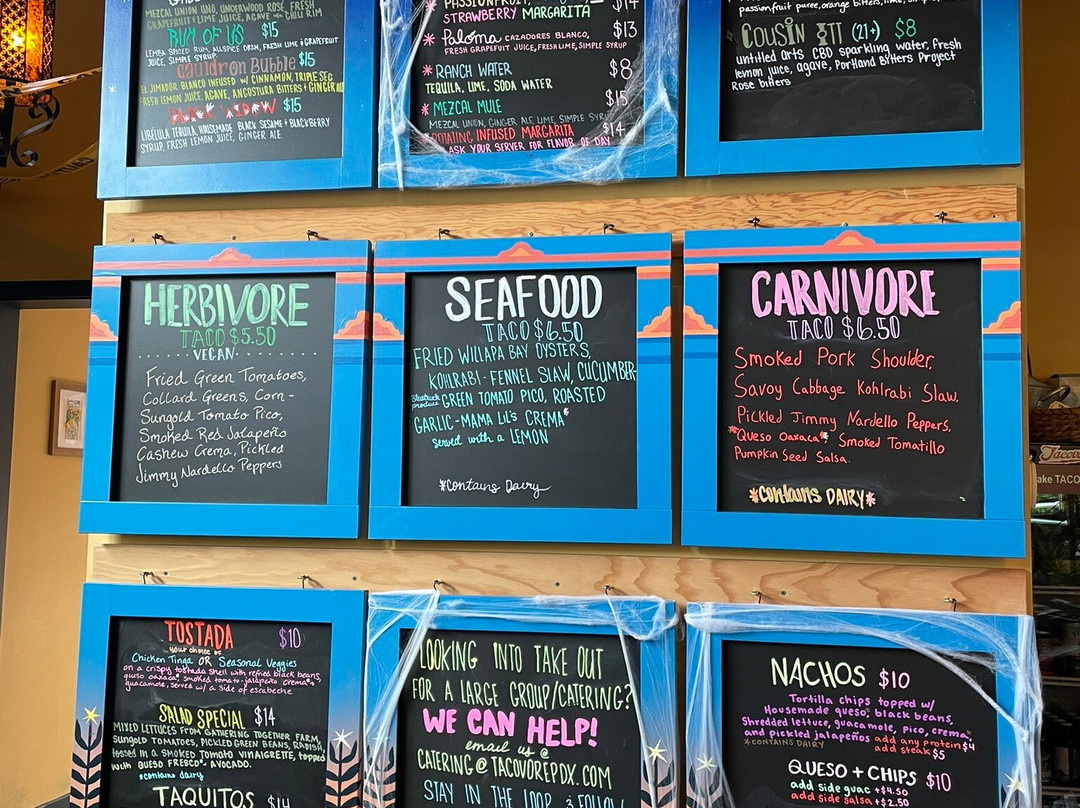 MEZCAL UNION UNO, UNDERWOOD ROSÉ, FRESH
GRAPEFRUIT + LIME JUICE, AGAVE + CHILI RIM
RUM OF US $15
LEMBA SPICED RUM, ALLSPICE DRAM, FRESH LIME & GRAPEFRUIT
JUICE, SIMPLE SYRUP
CAULDRON BUBBLE $15
EL JIMADOR BLANCO INFUSED W/ CINNAMON, TRIPLE SEC
FRESH LEMON JUICE, AGAVE, ANGOSTURA BITTERS + GINGER
BLACK WIDOW $15
LIBÉLULA TEQUILA, HOUSEMADE BLACK SESAME + BLACKBERRY
SYRUP, FRESH LEMON JUICE, GINGER ALE.
$14
STRAWBERRY MARGARITA
* Paloma CAZADORES BLANCO, $13
FRESH GRAPEFRUIT JUICE, FRESH LIME, SIMPLE SYRUP
* RANCH WATER $8
TEQUILA, LIME, SODA WATER
* MEZCAL MULE $15
MEZCAL UNION, GINGER ALE, LIME, SIMPLE SYRUP
ROTATING INFUSED MARGARITA $14
ASK YOUR SERVER FOR FLAVOR OF DAY
passionfruit puree, orange bitters, lime,
COUSIN ITT (21+) $8
untitled arts CBD sparkling water, fresh
lemon juice, agave, Portland Bitters Project
Rose bitters
HERBIVORE
TACO $5.50
VEGAN
Fried Green Tomatoes,
Collard Greens, Corn -
Sungold Tomato Pico,
Smoked Red Jalapeño
Cashew Crema, Pickled
Jimmy Nardello Peppers
SEAFOOD
TACO $6.50
FRIED WILLAPA BAY OYSTERS,
KOHLRABI - FENNEL SLAW, CUCUMBER-
Bluetruck produce GREEN TOMATO PICO, ROASTED
GARLIC-MAMA LIL'S CREMA*
served with a LEMON
*Contains Dairy
CARNIVORE
TACO $6.50
Smoked Pork Shoulder,
Savoy Cabbage Kohlrabi Slaw,
Pickled Jimmy Nardello Peppers,
*Queso Oaxaca* Smoked Tomatillo
Pumpkin Seed Salsa.
*contains DAIRY*
Tacovo
ake TACO
TOSTADA $10
your choice of
Chicken Tinga OR Seasonal Veggies
on a crispy tostada shell with refried black beans,
quiso oaxaca*, smoked tomato-jalapeño crema* +
guacamole, Served w/ a side of escabeche
SALAD SPECIAL $14
MIXED LETTUCES FROM GATHERING TOGETHER FARM,
SUNGOLD TOMATOES, PICKLED GREEN BEANS, RADISH,
tossed in a SMOKED TOMATO VINAIGRETTE, topped
with QUESO FRESCO* + AVOCADO.
*contains dairy
TAQUITOS $14
LOOKING INTO TAKE OUT
FOR A LARGE GROUP/CATERING?
WE CAN HELP!
email us @
CATERING@TACOVOREPDX.COM
STAY IN THE LOOP & FOLLOW
NACHOS $10
Tortilla chips topped w/
Housemade queso, black beans,
Shredded lettuce, guacamole, pico, crema,
and pickled jalapeños add any protein $4
*CONTAINS DAIRY add steak $5
QUESO + CHIPS $10
add side guac +$4.50
add side salsa +$2.50